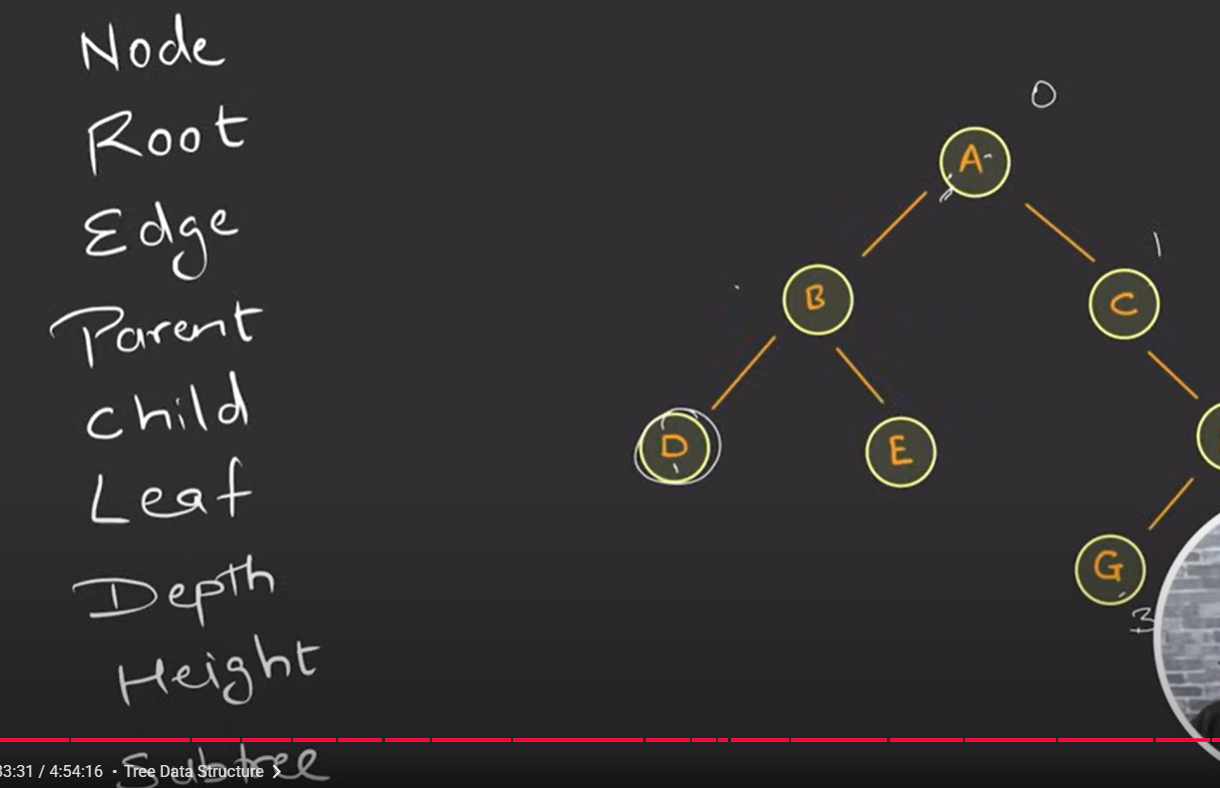 Node
Root
Edge
Parent
child
Leaf
Depth
Height
Subtree
0
A
1
B
C
D
E
G
3
33:31 / 4:54:16 • Tree Data Structure >